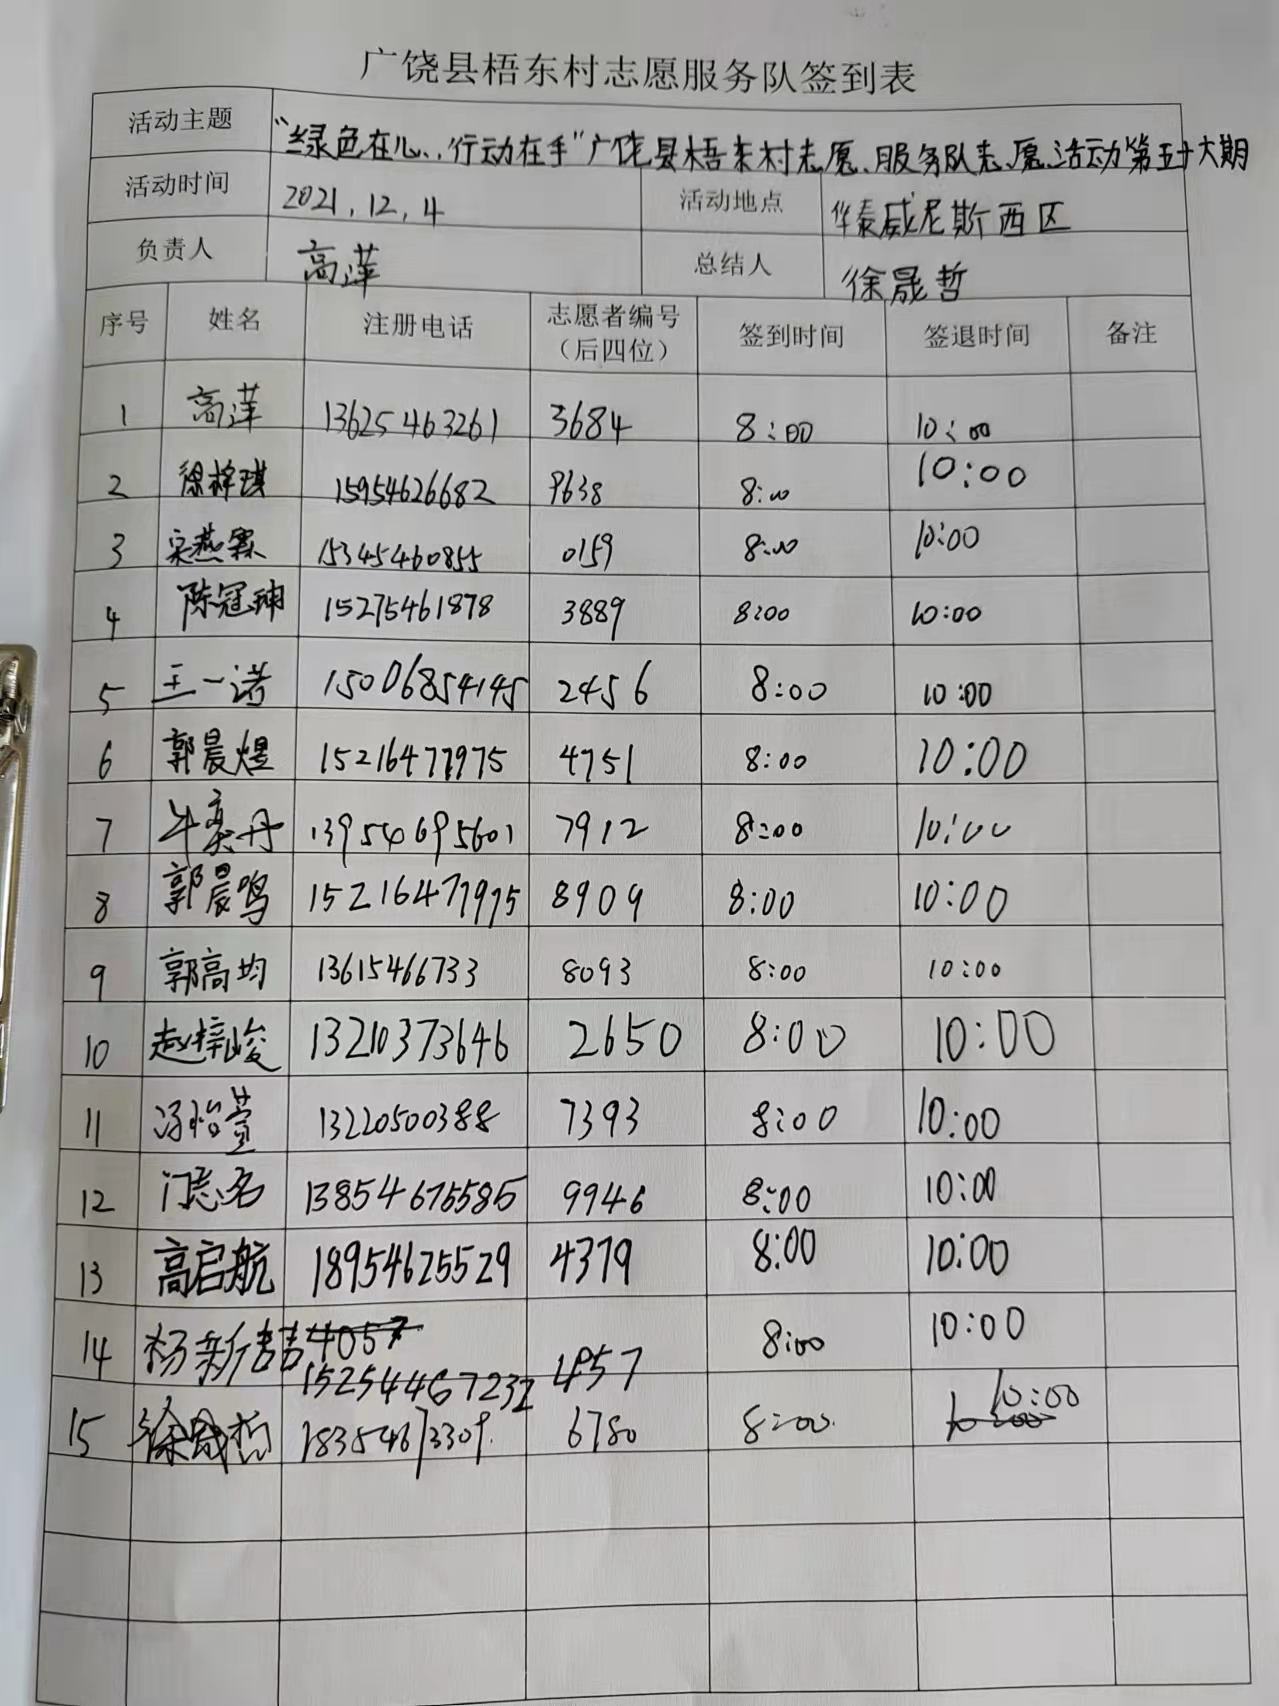 广饶县梧东村志愿服务队签到表
活动主题 "绿色在心,行动在手"广饶县梧东村志愿服务队志愿活动第五十六期
活动时间 2021.12.4 活动地点 华泰威尼斯西区
负责人 高莲 总结人 徐晟哲
序号 姓名 注册电话 志愿者编号（后四位） 签到时间 签退时间 备注
1 高莲 13625463261 3684 8:00 10:00
2 徐梓琪 15954626682 9638 8:00 10:00
3 宋燕霖 15345460855 0159 8:00 10:00
4 陈冠珅 15275461878 3889 8:00 10:00
5 王一诺 15006854145 2456 8:00 10:00
6 郭晨煜 15216477975 4751 8:00 10:00
7 牛奕丹 13954695601 7912 8:00 10:00
8 郭晨鸣 15216477975 8909 8:00 10:00
9 郭高均 13615466733 8093 8:00 10:00
10 赵梓峻 13210373646 2650 8:00 10:00
11 冯怡萱 13220500388 7393 8:00 10:00
12 门志名 13854675585 9946 8:00 10:00
13 高启航 18954625529 4379 8:00 10:00
14 杨新喆 4057 15254467232 4857 8:00 10:00
15 徐晟哲 18354673309 6780 8:00 10:00